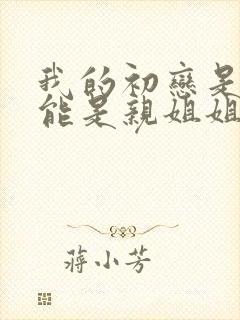 我的初戀是
能是親姐姐
蔣小芳